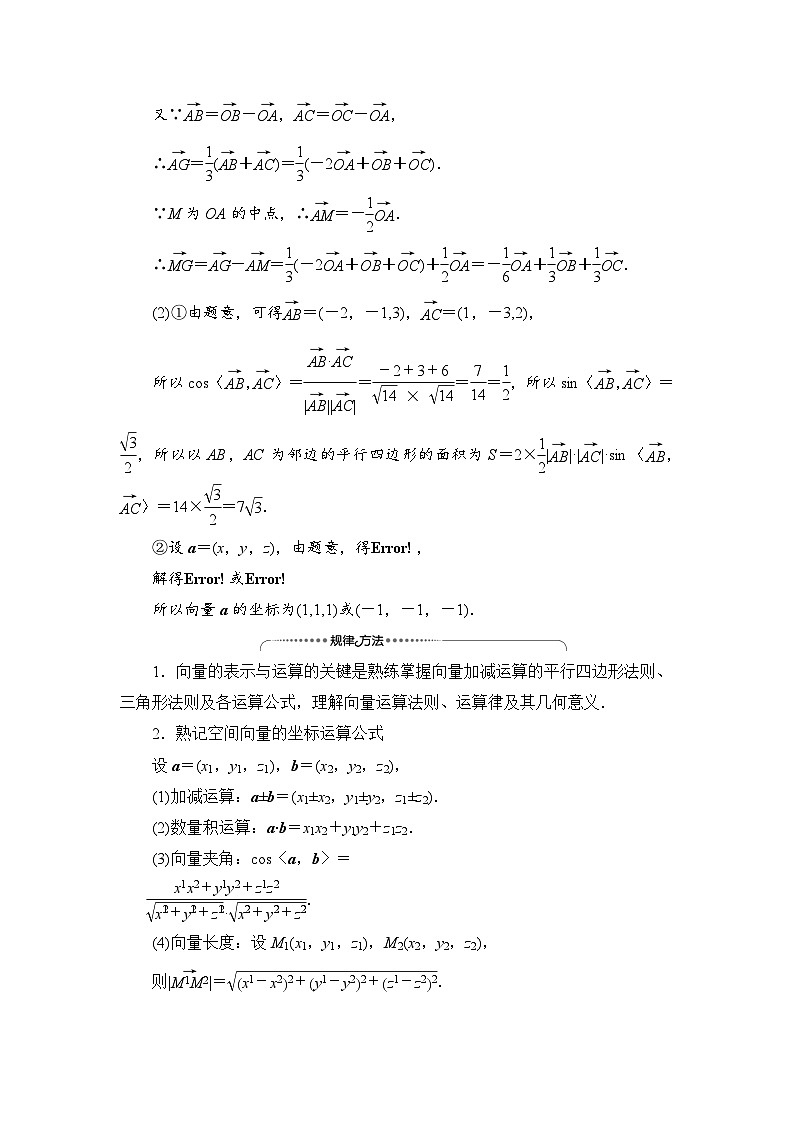 又∵AB→=OB→-OA→,AC→=OC→-OA→,
∴AG→=1/3(AB→+AC→)=1/3(-2OA→+OB→+OC→).
∵M为OA的中点,∴AM→=-1/2OA→.
∴MG→=AG→-AM→=1/3(-2OA→+OB→+OC→)+1/2OA→=-1/6OA→+1/3OB→+1/3OC→.
(2)①由题意,可得AB→=(-2,-1,3),AC→=(1,-3,2),
所以cos〈AB→,AC→〉=AB→·AC→/|AB→||AC→|=(-2+3+6)/(√14×√14)=7/14=1/2,所以sin〈AB→,AC→〉=
√3/2,所以以AB,AC为邻边的平行四边形的面积为S=2×1/2|AB→|·|AC→|·sin〈AB→,
AC→〉=14×√3/2=7√3.
②设a=(x,y,z),由题意,得Error!,
解得Error!或Error!
所以向量a的坐标为(1,1,1)或(-1,-1,-1).
规律方法
1.向量的表示与运算的关键是熟练掌握向量加减运算的平行四边形法则、
三角形法则及各运算公式,理解向量运算法则、运算律及其几何意义.
2.熟记空间向量的坐标运算公式
设a=(x1,y1,z1),b=(x2,y2,z2),
(1)加减运算:a±b=(x1±x2,y1±y2,z1±z2).
(2)数量积运算:a·b=x1x2+y1y2+z1z2.
(3)向量夹角:cos〈a,b〉=
(x1x2+y1y2+z1z2)/(√(x1²+y1²+z1²)·√(x2+y2+z2)).
(4)向量长度:设M1(x1,y1,z1),M2(x2,y2,z2),
则|M1M2→|=√((x1-x2)2+(y1-y2)2+(z1-z2)2).